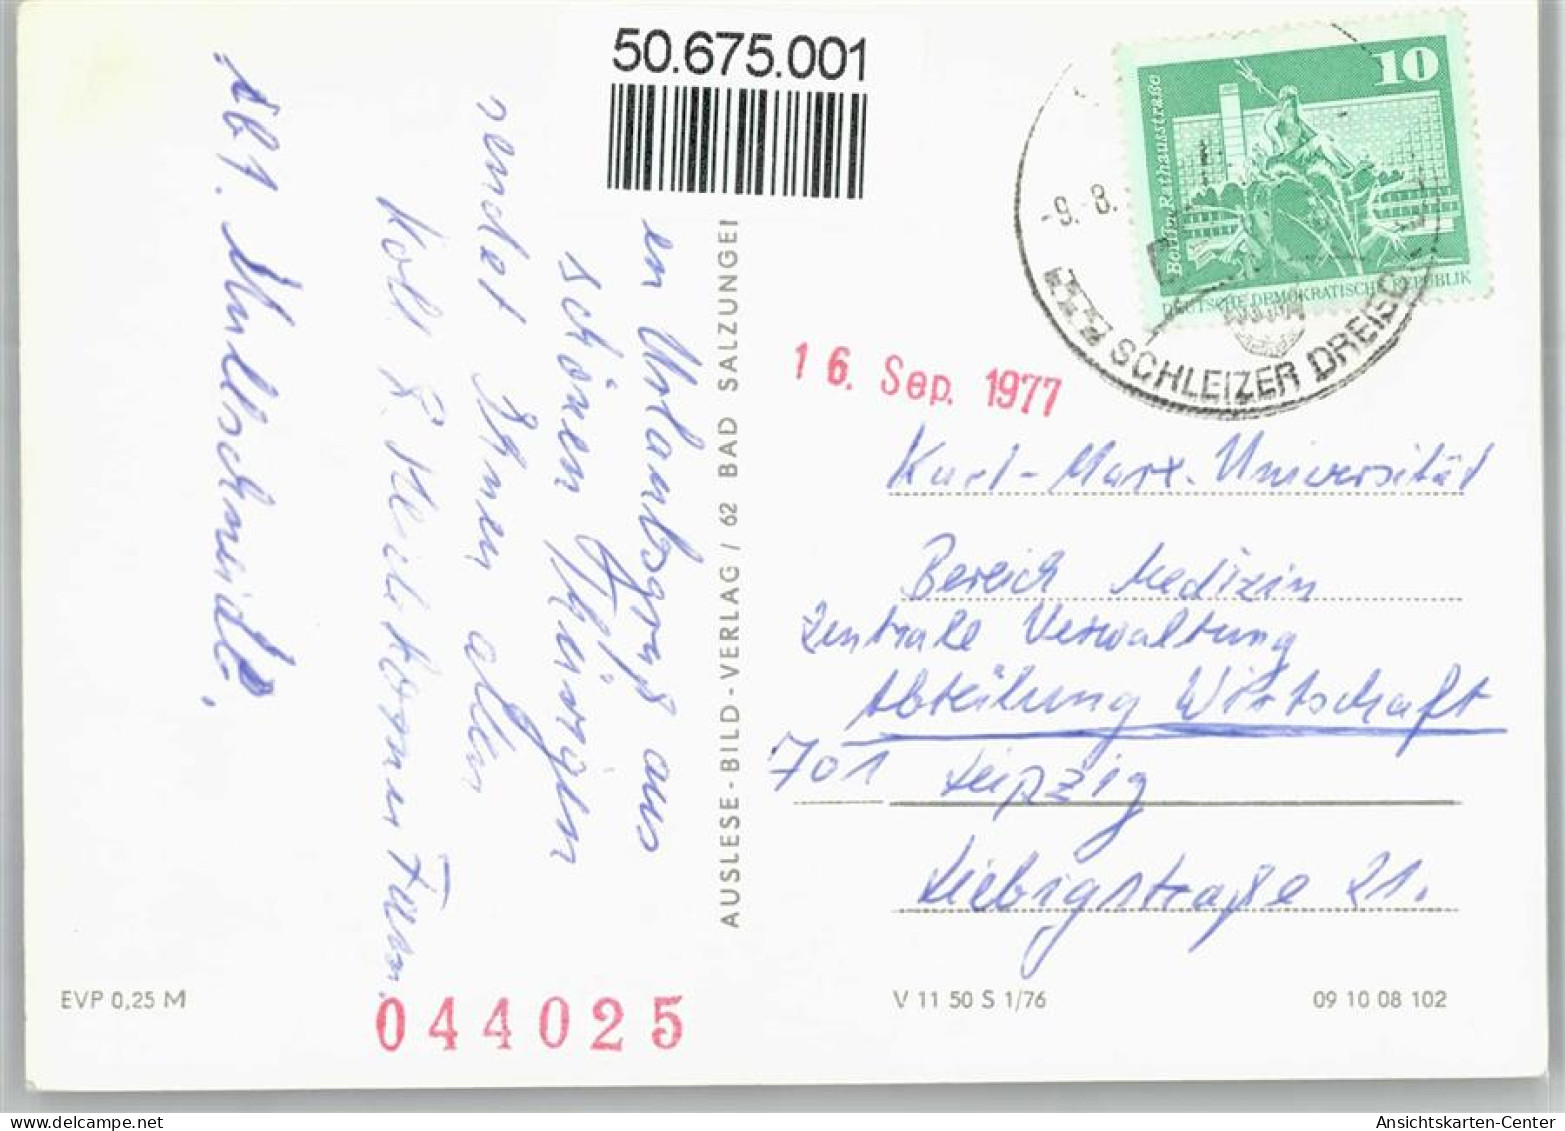 50.675.001
10
Berlin, Rathausstraße
DEUTSCHE DEMOKRATISCHE REPUBLIK
-9.-8.
SCHLEIZER DREIECK
16. Sep. 1977
en Urlaubsgruß aus
schönen Thüringen
sendet Ihnen allen
Koll. R. u. Fam.
Abt.
AUSLESE-BILD-VERLAG / 62 BAD SALZUNGEN
Karl-Marx-Universität
Bereich Medizin
Zentrale Verwaltung
Abteilung Wirtschaft
701 Leipzig
Liebigstraße 21.
EVP 0,25 M
044025
V 11 50 S 1/76
09 10 08 102
Ansichtskarten-Center